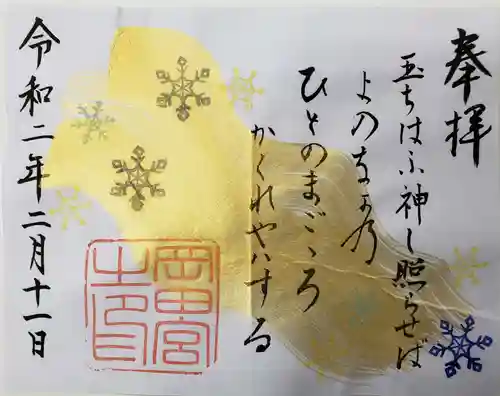 奉拝
玉ちはふ神し照らせば
よのなかの
ひとのまごゝろ
かくれやはする
岡田宮
之印
令和二年二月十一日